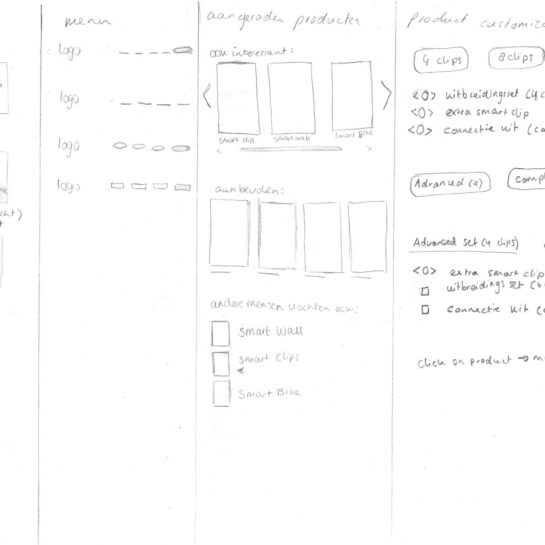 menu
logo
logo
logo
logo
aangeraden producten
ook interessant:
smart clip
smart wall
smart Bike
aanbevolen:
andere mensen kochten ook:
Smart Wall
Smart Clips
Smart Bike
Product customiza
4 clips
8 clips
<0> uitbreidingset (4 c
<0> extra smart clip
<0> connectie kit (co
Advanced (4)
Comp
Advanced set (4 clips)
<0> extra smart clip
uitbreidings set (4
connectie kit (c
click on product → m
cht)